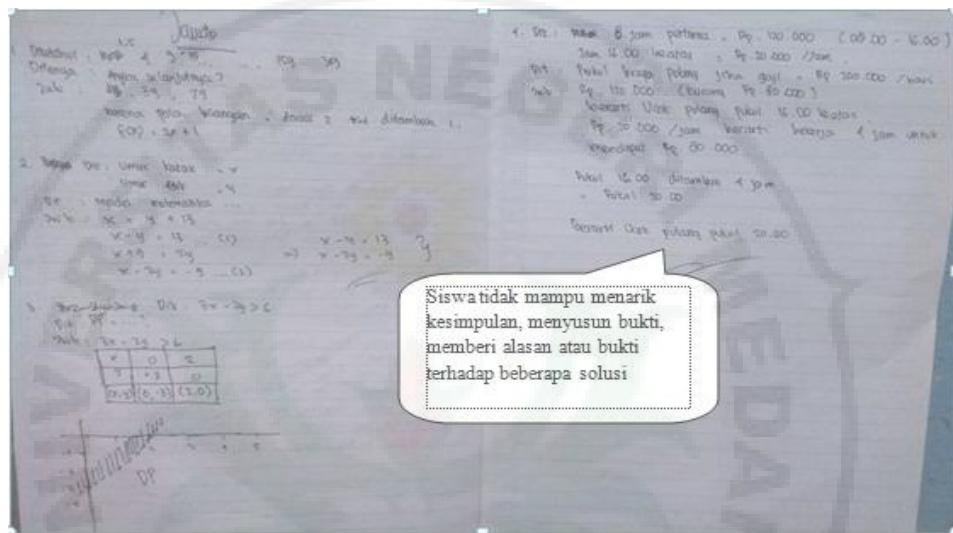 Jawab
1. Diketahui :
Ditanya : Angka selanjutnya?
Jwb :
karena pola bilangan , dikali 2 ditambah 1.
f(x) = 2x + 1
2. Dit : Umur kakak = x
Umur = y
Dit : model matematika ...
Jwb : x = y + 13
x - y = 13 ... (1)
x + 9 = 2y
x - 2y = -9 ... (2)
=> x - y = 13
x - 2y = -9 }
3. Dik 3x - 2y > 6
Dit DP ...
Jwb : 3x - 2y > 6
x 0 2
y -3 0
(x,y) (0,-3) (2,0)
DP
4. Dik : 8 jam pertama = Rp. 120.000 (08.00 - 16.00)
Jam 16.00 keatas = Rp. 20.000 /jam.
Dit Pukul berapa pulang jika gaji = Rp 200.000 /hari
Jwb Rp. 120.000 (kurang Rp. 80.000)
berarti Ucok pulang pukul 16.00 keatas
Rp. 20.000 /jam berarti bekerja 4 jam untuk
mendapat Rp. 80.000
Pukul 16.00 ditambah 4 jam
= Pukul 20.00
Berarti Ucok pulang pukul 20.00
Siswa tidak mampu menarik
kesimpulan, menyusun bukti,
memberi alasan atau bukti
terhadap beberapa solusi